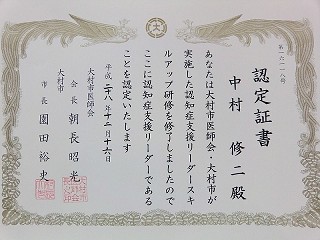 第一六一八号
認定証書
中村修二殿
あなたは大村市医師会・大村市が
実施した認知症支援リーダースキ
ルアップ研修を修了しましたので
ここに認知症支援リーダーである
ことを認定いたします
平成二八年十二月十六日
大村市医師会
会長 朝長昭光
大村市
市長 園田裕史